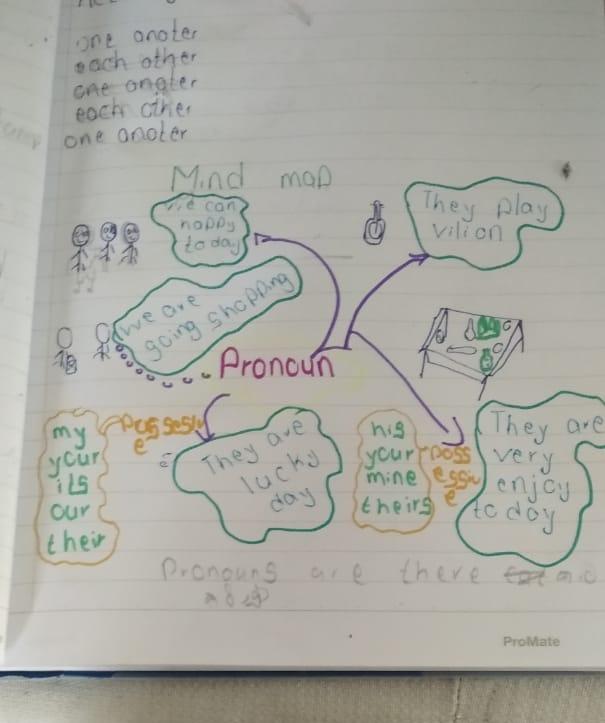 one anoter
each other
one anoter
each other
one anoter
Mind map
we can
happy
today
They play
vilion
we are
going shopping
Pronoun
my
your
its
our
their
possesiv
e
They are
lucky
day
his
your
mine
theirs
poss
essiv
e
They are
very
enjoy
today
Pronouns are there
ProMate